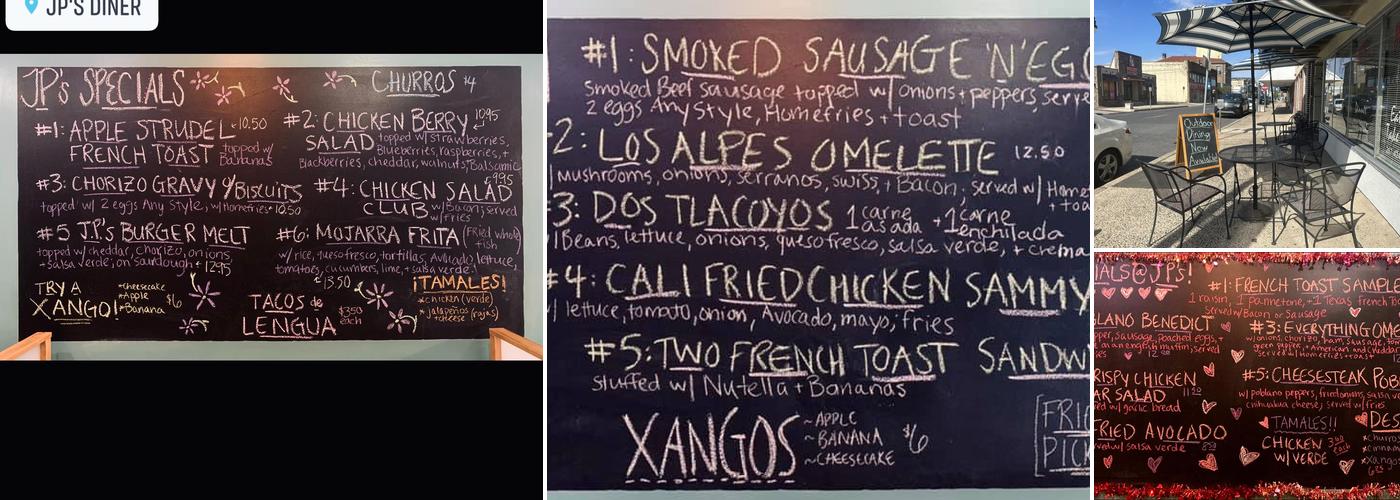 JP'S DINER
JP's SPECIALS
CHURROS $4
#1: APPLE STRUDEL 10.50
FRENCH TOAST topped w/ Bananas
#2: CHICKEN BERRY 10.95
SALAD topped w/ strawberries,
Blueberries, raspberries, +
Blackberries, cheddar, walnuts, Balsamic
#3: CHORIZO GRAVY w/ BISCUITS
topped w/ 2 eggs Any Style, w/ Homefries 10.50
#4: CHICKEN SALAD 9.95
CLUB w/ Bacon, served
w/ fries
#5 JP's BURGER MELT
topped w/ cheddar, chorizo, onions,
+ salsa verde, on sourdough + 12.95
#6: MOJARRA FRITA (Fried whole
fish
w/ rice, queso fresco, tortillas, Avocado, lettuce,
tomatoes, cucumbers, lime, + salsa verde.
13.50
TRY A
XANGO!
*Cheesecake
*Apple
*Banana
$6
TACOS de
LENGUA
$3.50
each
¡TAMALES!
*chicken (verde)
*jalapeños
+ cheese (rajas)
#1: SMOKED SAUSAGE 'N' EGG
smoked Beef sausage topped w/ onions + peppers, serve
2 eggs Any Style, Homefries + toast
2: LOS ALPES OMELETTE 12.50
Mushrooms, onions, serranos, swiss, + Bacon, served w/ Home
+ toa
3: DOS TLACOYOS 1 carne asada + 1 carne enchilada
w/ Beans, lettuce, onions, queso fresco, salsa verde, + crema
#4: CALI FRIED CHICKEN SAMMY
w/ lettuce, tomato, onion, Avocado, mayo, fries
#5: TWO FRENCH TOAST SANDW
stuffed w/ Nutella + Bananas
XANGOS
~APPLE
~BANANA
~CHEESECAKE
$6
FRIE
PICK
Outdoor
Dining
Now
Available!
IALS@JP's!
#1: FRENCH TOAST SAMPLE
1 raisin, 1 pannetone, +1 Texas french t
served w/ Bacon or Sausage
LANO BENEDICT
pper, sausage, poached eggs, +
on an english muffin, served
#3: EVERYTHING OME
w/ onions, chorizo, ham, sausage, tom
green pepper, + American and cheddar
served w/ homefries + toast
RISPY CHICKEN
AR SALAD
ed w/ garlic bread
#5: CHEESESTEAK POB
w/ poblano peppers, fried onions, salsa v
chihuahua cheese; served w/ fries
FRIED AVOCADO
rved w/ salsa verde
TAMALES!!
CHICKEN
w/ VERDE
each
DES
*churro
*cinnam
*xangos